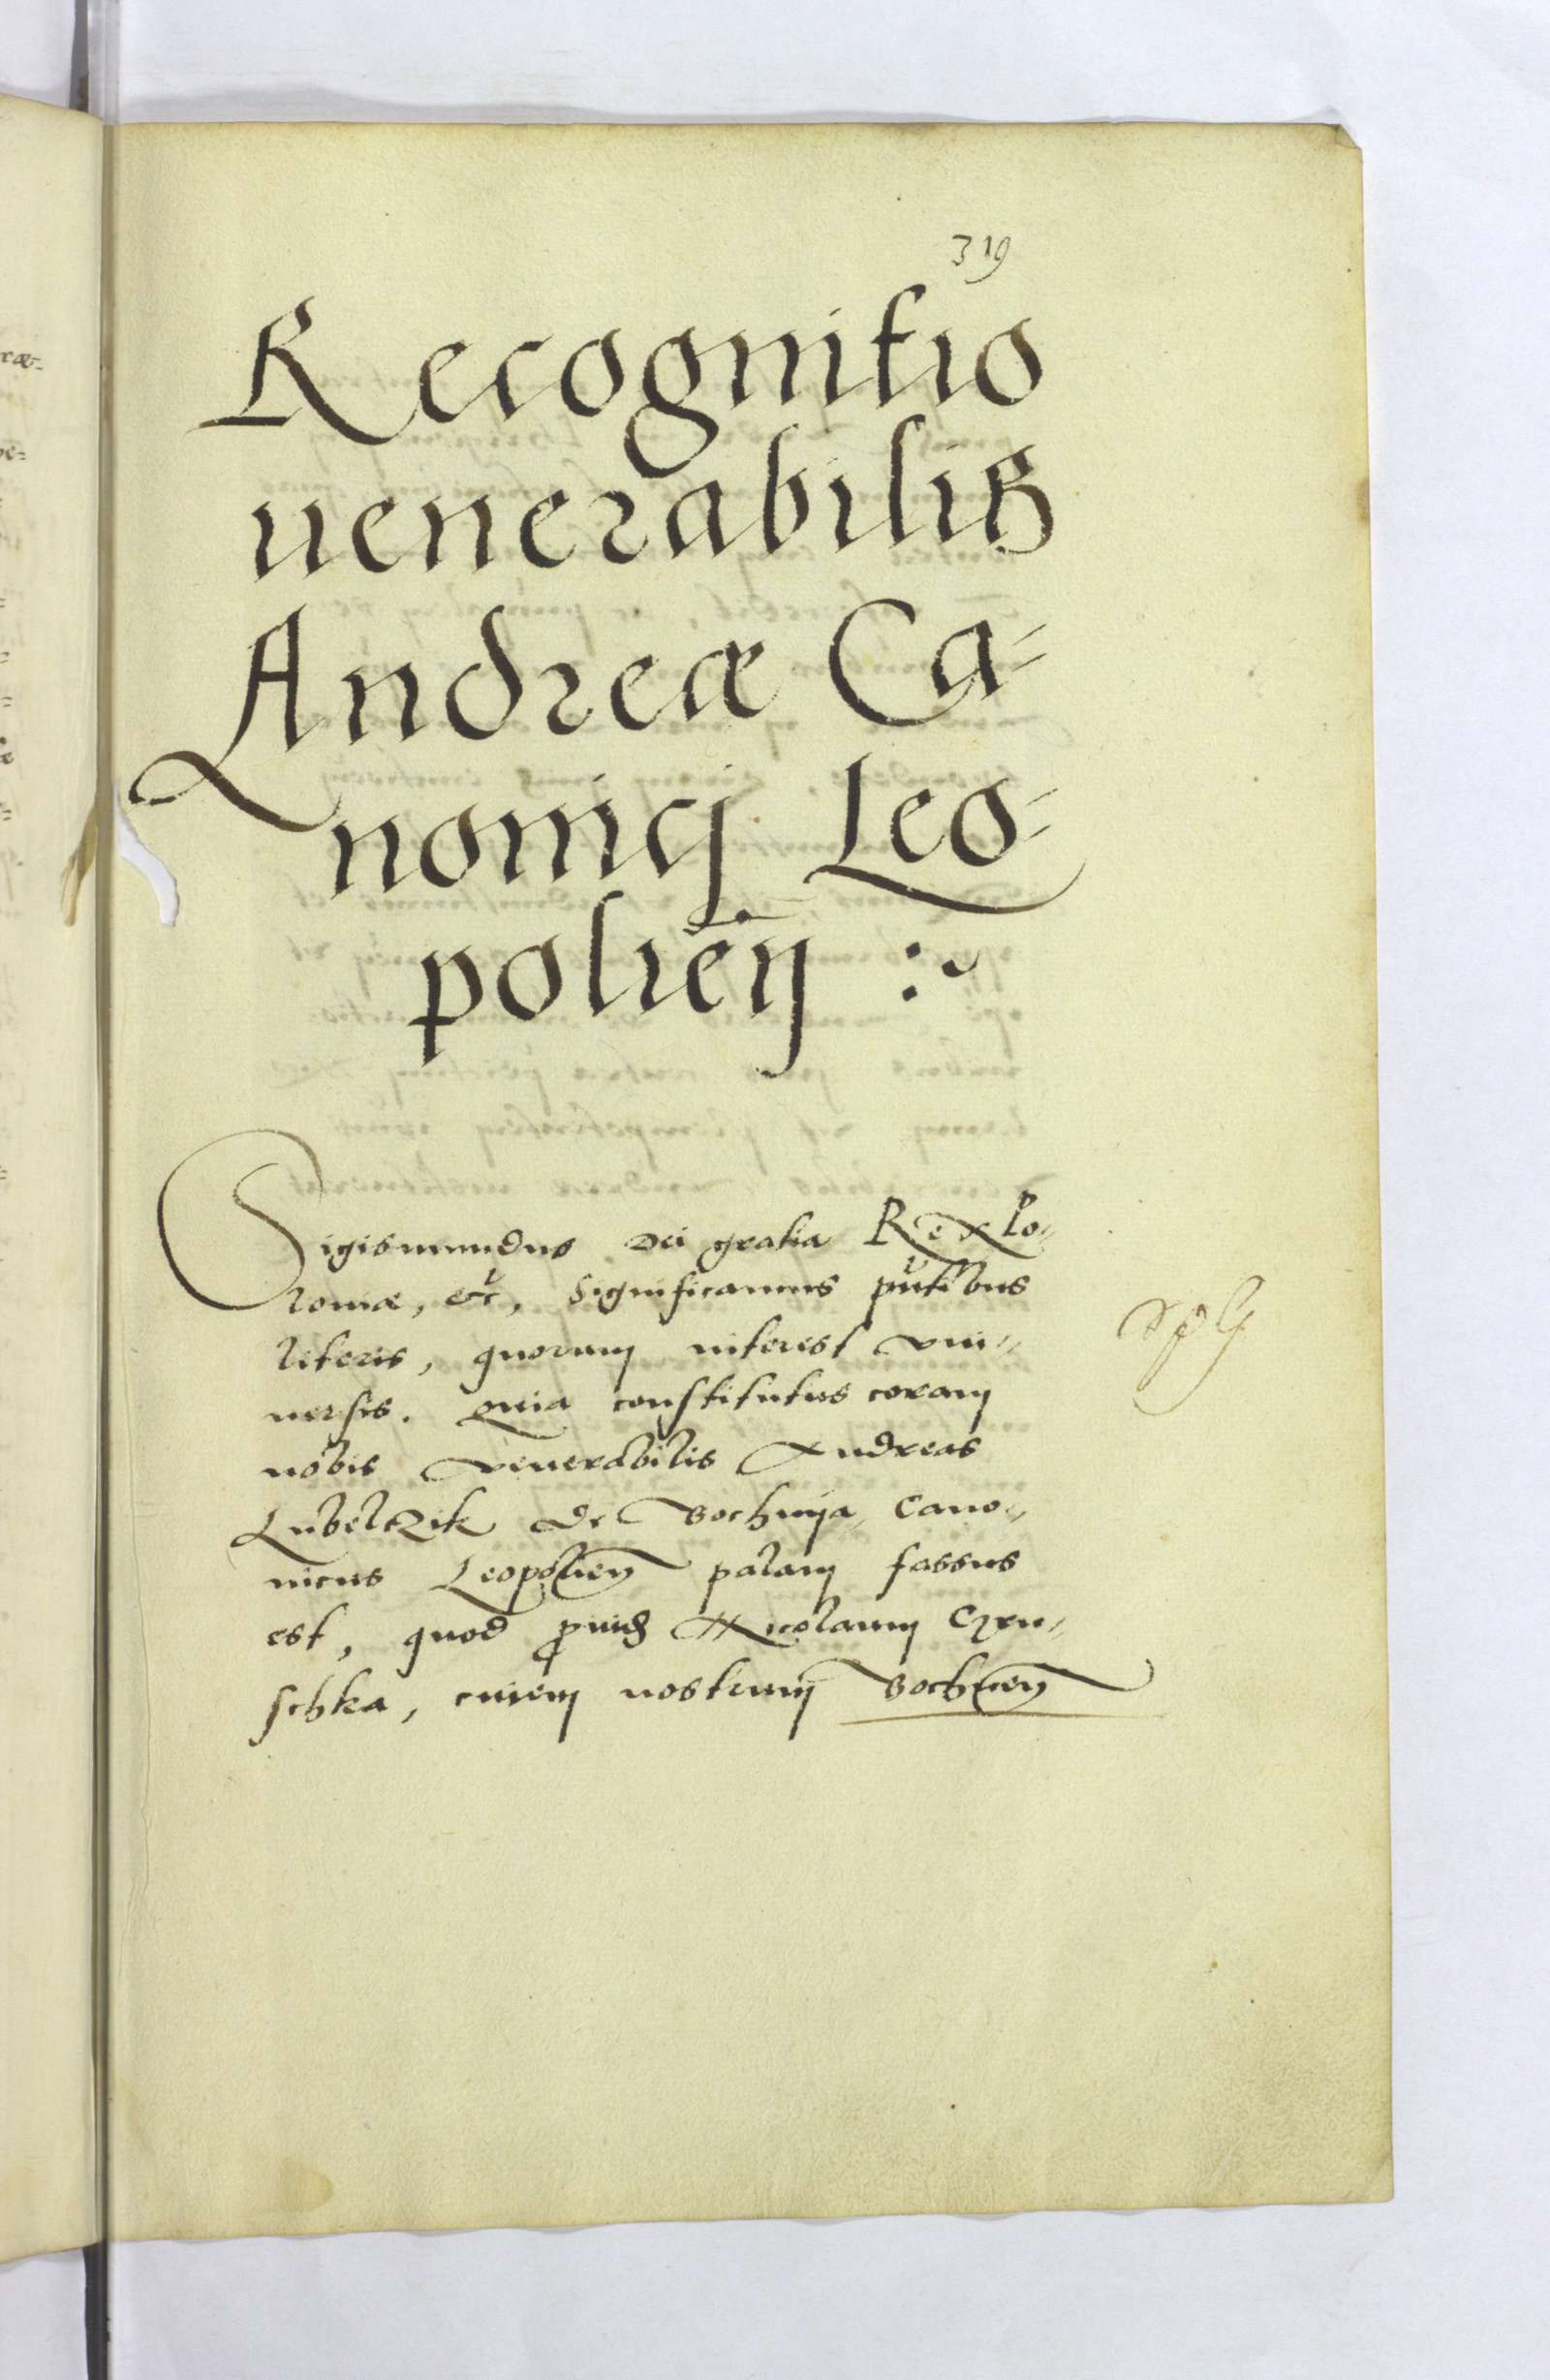 319
Recognitio
uenerabilis
Andreæ Ca=
nonicj Leo=
polień :~
Sigismundus Dei gratia Rex Po=
loniæ, etc, Significamus pñtibus
literis, quorum interest vni=
uersis. Quia constitutus coram
nobis venerabilis Andreas
Lubelczik de Bochnija, Cano=
nicus Leopolien palam fassus
est, quod prouid Nicolaum Czru=
schka, ciuem nostrum Bochnen